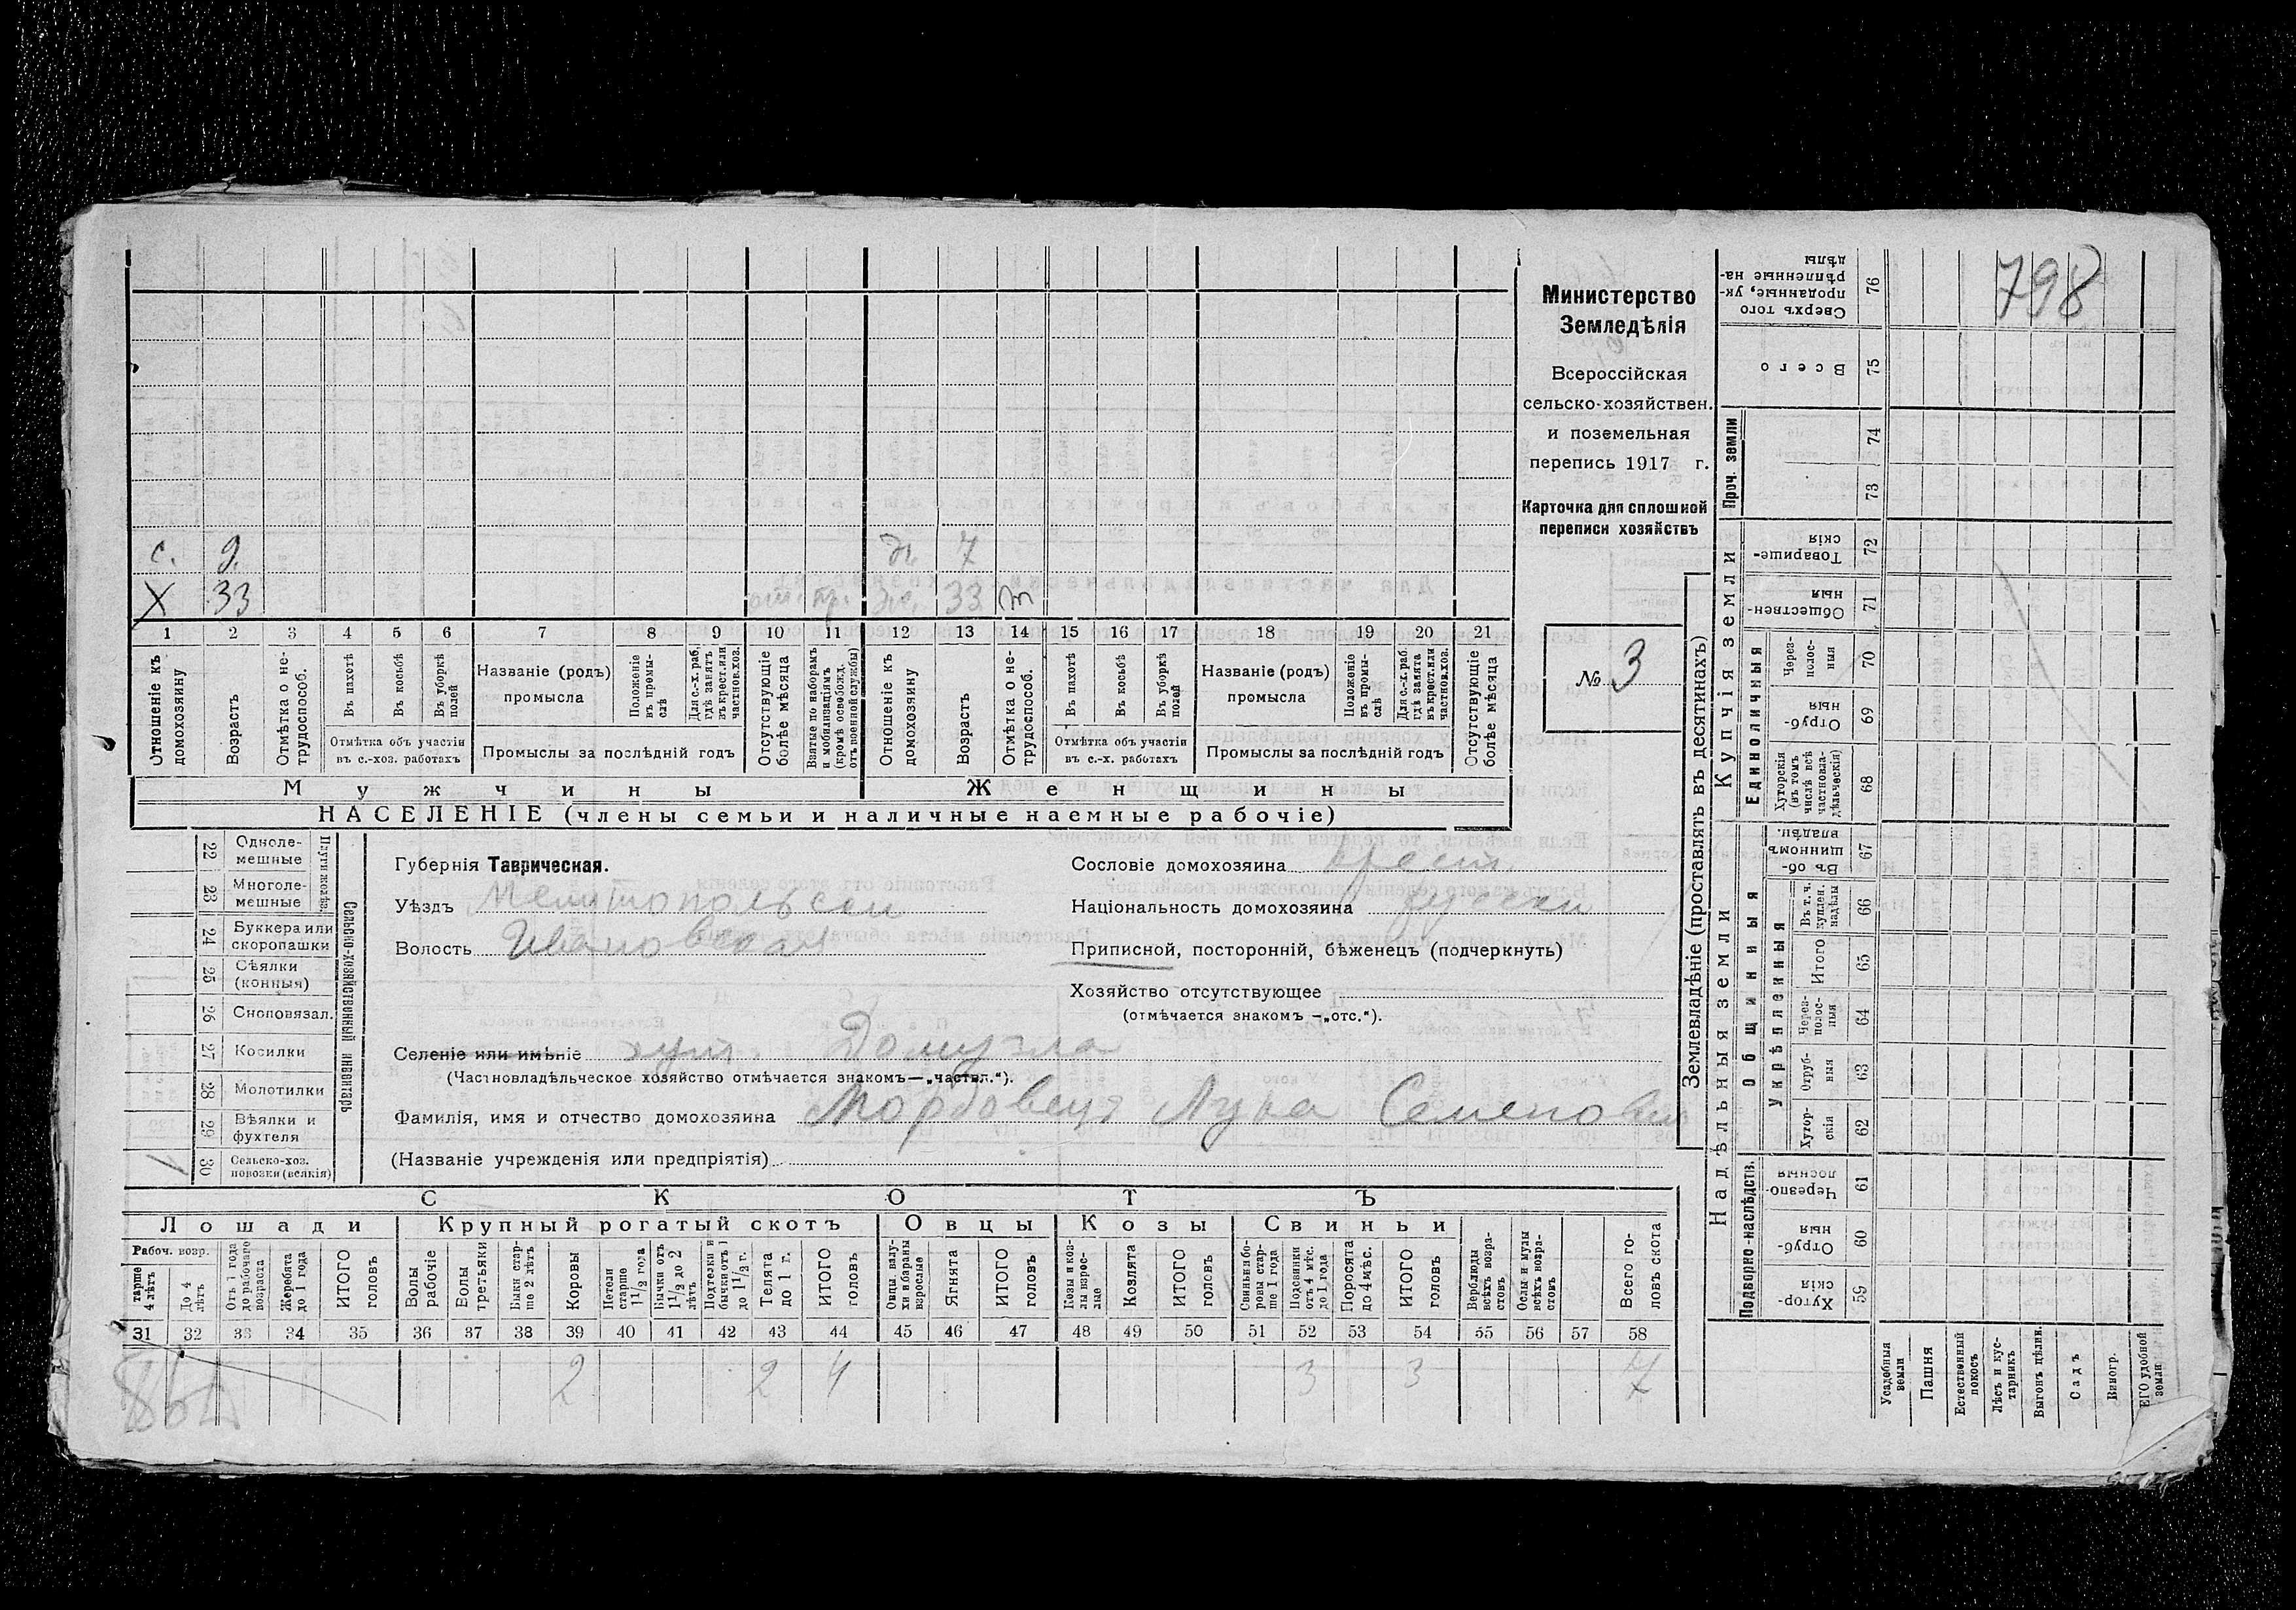 798
Министерство
Земледѣлія
Всероссійская
сельско-хозяйствен.
и поземельная
перепись 1917 г.
Карточка для сплошной
переписи хозяйствъ
№ 3
с. 9. 7
X 33 ж. 33
1 2 3 4 5 6 7 8 9 10 11 12 13 14 15 16 17 18 19 20 21
Отношеніе къ домохозяину
Возрастъ
Отмѣтка о не-трудоспособ.
Въ пахотѣ
Въ косьбѣ
Въ уборкѣ полей
Отмѣтка объ участіи
въ с.-хоз. работахъ
Названіе (родъ)
промысла
Положеніе въ промы-слѣ
Для с.-х. раб. гдѣ занятъ въ крест. или частнов. хоз.
Промыслы за послѣдній годъ
Отсутствующіе болѣе мѣсяца
Взятые по наборамъ и мобилизаціямъ (кромѣ освобожд. отъ военной службы)
Отношеніе къ домохозяину
Возрастъ
Отмѣтка о не-трудоспособ.
Въ пахотѣ
Въ косьбѣ
Въ уборкѣ полей
Отмѣтка объ участіи
въ с.-х. работахъ
Названіе (родъ)
промысла
Положеніе въ промы-слѣ
Для с.-х. раб. гдѣ занята въ крест. или частнов. хоз.
Промыслы за послѣдній годъ
Отсутствующіе болѣе мѣсяца
Мужчины Женщины
НАСЕЛЕНІЕ (члены семьи и наличные наемные рабочіе)
22 Одноле-мешные
23 Многоле-мешные
Плуги желѣз.
24 Буккера или скоропашки
25 Сѣялки (конныя)
26 Сноповязал.
27 Косилки
28 Молотилки
29 Вѣялки и фухтеля
30 Сельско-хоз. повозки (всякія)
1
Сельско-хозяйственный инвентарь
Губернія Таврическая.
Уѣздъ Мелитопольский
Волость Ивановская
Сословіе домохозяина крест.
Національность домохозяина русский
Приписной, посторонній, бѣженецъ (подчеркнуть)
Хозяйство отсутствующее
(отмѣчается знакомъ —„отс.“).
Селеніе или имѣніе хут. Домузла
(Частновладѣльческое хозяйство отмѣчается знакомъ—„частвл.“).
Фамилія, имя и отчество домохозяина Мордовецъ Лука Семенович
(Названіе учрежденія или предпріятія)
СКОТЪ
Лошади Крупный рогатый скотъ Овцы Козы Свиньи
Рабоч. возр.
тарше 4 лѣтъ
До 4 лѣтъ
Отъ 1 года до рабочаго возраста
Жеребята до 1 года
ИТОГО головъ
Волы рабочіе
Волы третьяки
Быки стар-ше 2 лѣтъ
Коровы
Нетели старше 1 1/2 года
Бычки отъ 1 1/2 до 2 лѣтъ
Подтелки и бычки отъ 1 до 1 1/2 г.
Телята до 1 г.
ИТОГО головъ
Овцы, валу-хи и бараны взрослые
Ягнята
ИТОГО головъ
Козы и коз-лы взрос-лые
Козлята
ИТОГО головъ
Свиньи и бо-ровы стар-ше 1 года
Подсвинки отъ 4 мѣс. до 1 года
Поросята до 4 мѣс.
ИТОГО головъ
Верблюды всѣхъ возра-стовъ
Ослы и мулы всѣхъ возра-стовъ
Всего го-ловъ скота
31 32 33 34 35 36 37 38 39 40 41 42 43 44 45 46 47 48 49 50 51 52 53 54 55 56 57 58
2 2 4 3 3 7
Землевладѣніе (проставлять въ десятинахъ)
Надѣльныя земли Купчія земли Проч. земли
Подворно-наслѣдств.
Общинныя
Укрѣпленныя
Единоличныя
76 Сверхъ того проданные, ук-рѣпленные на-дѣлы
75 Всего
74
73
72 Товарище-скія
71 Обществен-ныя
70 Через-полос-ныя
69 Отруб-ныя
68 Хуторскія (въ томъ числѣ всѣ частновла-дѣльческія)
67 Въ об-щинномъ владѣн.
66 Въ т. ч. куплен. надѣлы
65 Итого
64 Через-полос-ныя
63 Отруб-ныя
62 Хутор-скія
61 Черезпо-лосныя
60 Отруб-ныя
59 Хутор-скія
Усадебныя земли
Пашня
Естественный покосъ
Лѣсъ и кус-тарникъ
Выгонъ цѣлин.
Садъ
Виногр.
ЕГО удобной земли